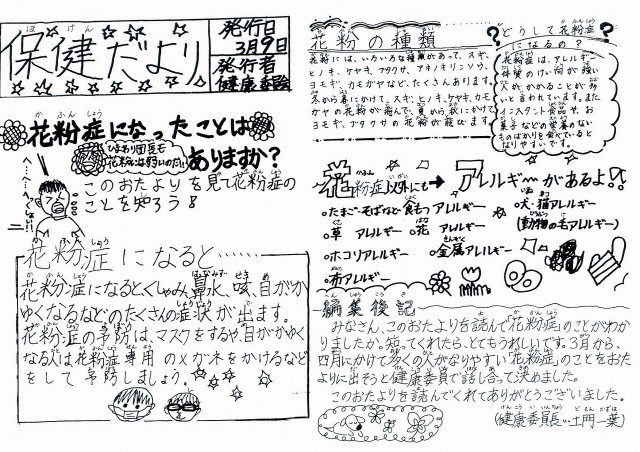 保健だより
発行日
3月9日
発行者
健康委員会
花粉症になったことは
ありますか?
ひまわり団長も
花粉には弱いのだ!!
へ…へ…へーくしょん!!
このおたよりを見て花粉症の
ことを知ろう!
花粉症になると……
花粉症になるとくしゃみ、鼻水、咳、目がか
ゆくなるなどのたくさんの症状が出ます。
花粉症の予防は、マスクをするや、目がかゆく
なる人は花粉症専用のメガネをかけるなど
をして予防しましょう。
花粉の種類
花粉には、いろいろな種類があって、スギ、
ヒノキ、ケヤキ、ブタクサ、アキノキリンソウ、
ヨモギ、カモガヤなど、たくさんあります。
冬から春にかけて、スギ、ヒノキ、ケヤキ、カモ
ガヤの花粉が飛んで、夏から秋にかけて
ヨモギ、ブタクサの花粉が飛びます。
どうして花粉症
になるの?
花粉症は、アレルギー
体質のけい向が強い
人がかかることが多い
と言われています。また、
インスタント食品や、お
菓子などの栄養のない
ものばかりを食べていると
なりやすいです。
花粉症以外にも→アレルギーがあるよ!!
○たまご・そばなど食もつアレルギー
○犬・猫アレルギー
(動物の毛アレルギー)
○草アレルギー ○花アレルギー
○ホコリアレルギー ○金属アレルギー
○布アレルギー
編集後記
みなさん、このおたよりを読んで「花粉症」のことがわか
りましたか。知ってくれたら、とてもうれしいです。3月から、
四月にかけて多くの人がなりやすい「花粉症」のことをおた
よりに出そうと健康委員で話し合って決めました。
このおたよりを読んでくれてありがとうございました。
(健康委員長…土門一葉)